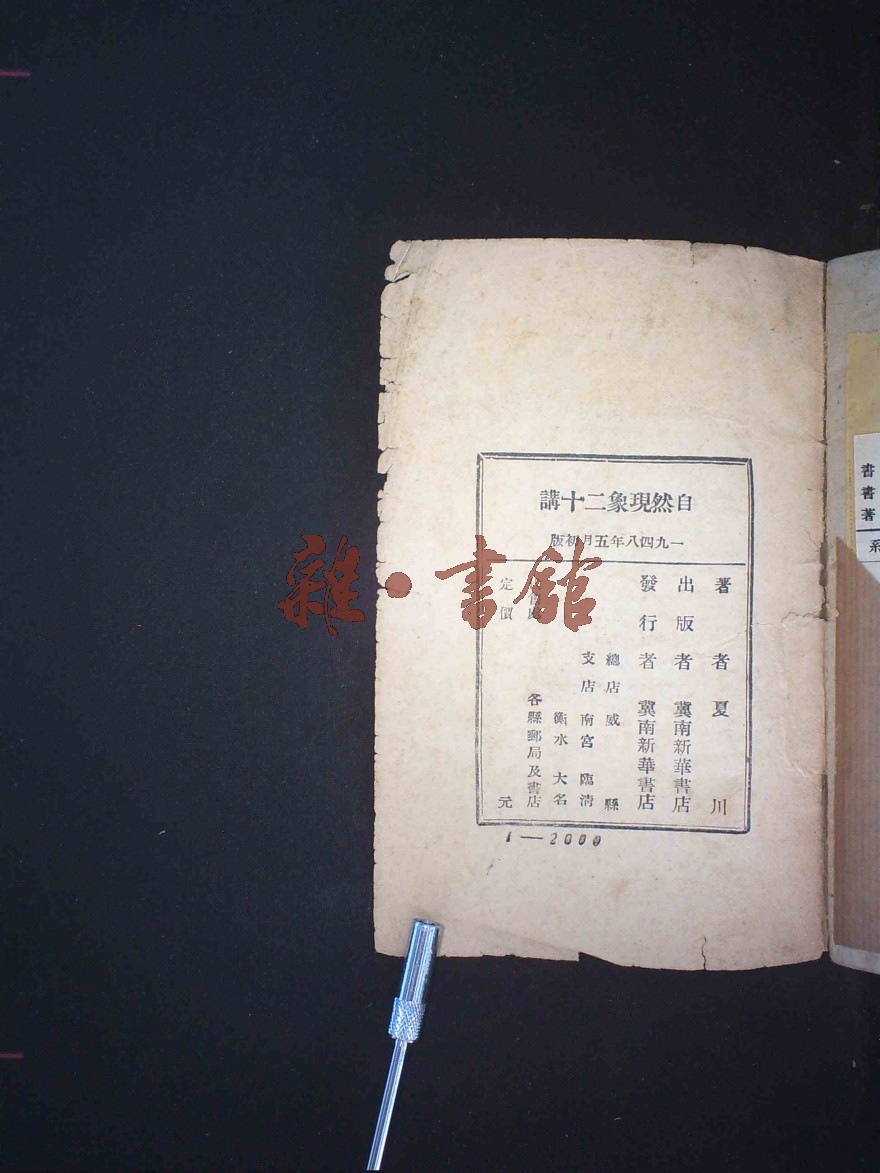 自然現象二十講
一九四八年五月初版
著者 夏川
出版者 冀南新華書店
發行者 冀南新華書店
總店 威縣
支店 南宮 臨清
衡水 大名
各縣郵局及書店
定價 元
1—2000
雜·書館
書
書
著
系